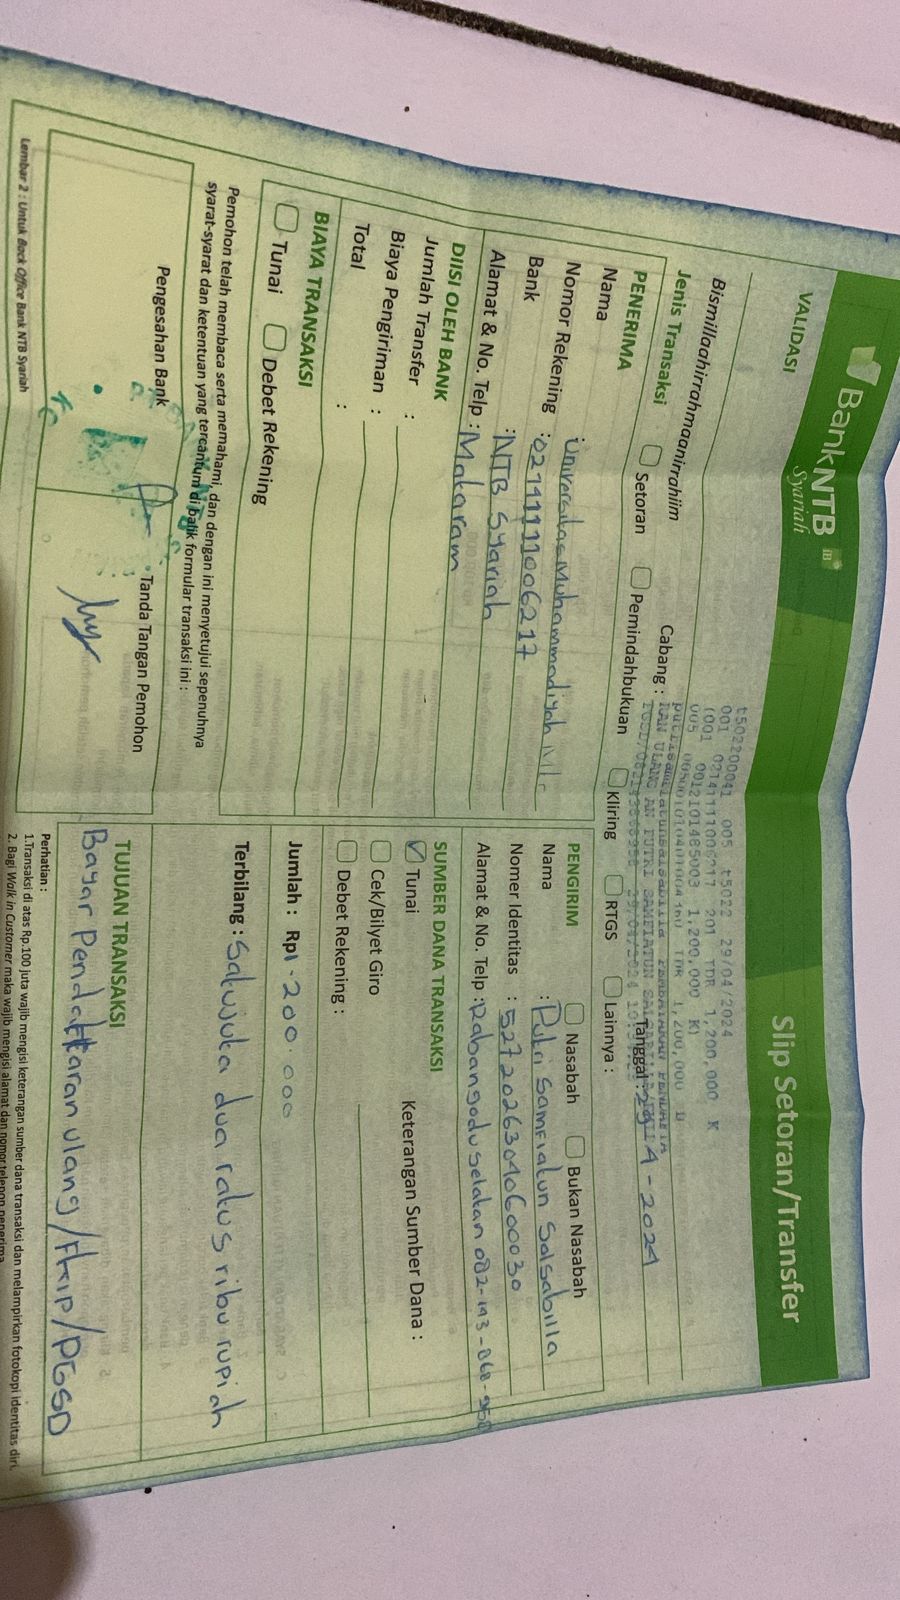 BankNTB
Syariah
Slip Setoran/Transfer
VALIDASI
t502200041 005 t5022 29/04/2024
001 0214111006217 201 TDR 1,200,000 K
(001 0012101485003 1,200,000 K)
005 TDR 1,200,000 D
Bismillaahirrahmaanirrahiim
Cabang :
Tanggal : 29 - 4 - 2024
Jenis Transaksi
Setoran
Pemindahbukuan
Kliring
RTGS
Lainnya :
PENERIMA
Nama : Universitas Muhammadiyah
Nomor Rekening : 0214111006217
Bank : NTB Syariah
Alamat & No. Telp : Mataram
DIISI OLEH BANK
Jumlah Transfer :
Biaya Pengiriman :
Total :
BIAYA TRANSAKSI
Tunai
Debet Rekening
Pemohon telah membaca serta memahami, dan dengan ini menyetujui sepenuhnya
syarat-syarat dan ketentuan yang tercantum di balik formular transaksi ini :
Pengesahan Bank
Tanda Tangan Pemohon
Lembar 2 : Untuk Back Office Bank NTB Syariah
PENGIRIM
Nasabah
Bukan Nasabah
Nama : Putri Samfiatun Salsabilla
Nomer Identitas : 5272026304060030
Alamat & No. Telp : Rabangodu Selatan 082-143-868-958
SUMBER DANA TRANSAKSI
Tunai
Keterangan Sumber Dana :
Cek/Bilyet Giro
Debet Rekening :
Jumlah : Rp1.200.000
Terbilang : Satu juta dua ratus ribu rupiah
TUJUAN TRANSAKSI
Bayar Pendaftaran ulang/FKIP/PGSD
Perhatian :
1.Transaksi di atas Rp.100 juta wajib mengisi keterangan sumber dana transaksi dan melampirkan fotokopi identitas diri.
2. Bagi Walk in Customer maka wajib mengisi alamat dan nomor telepon penerima